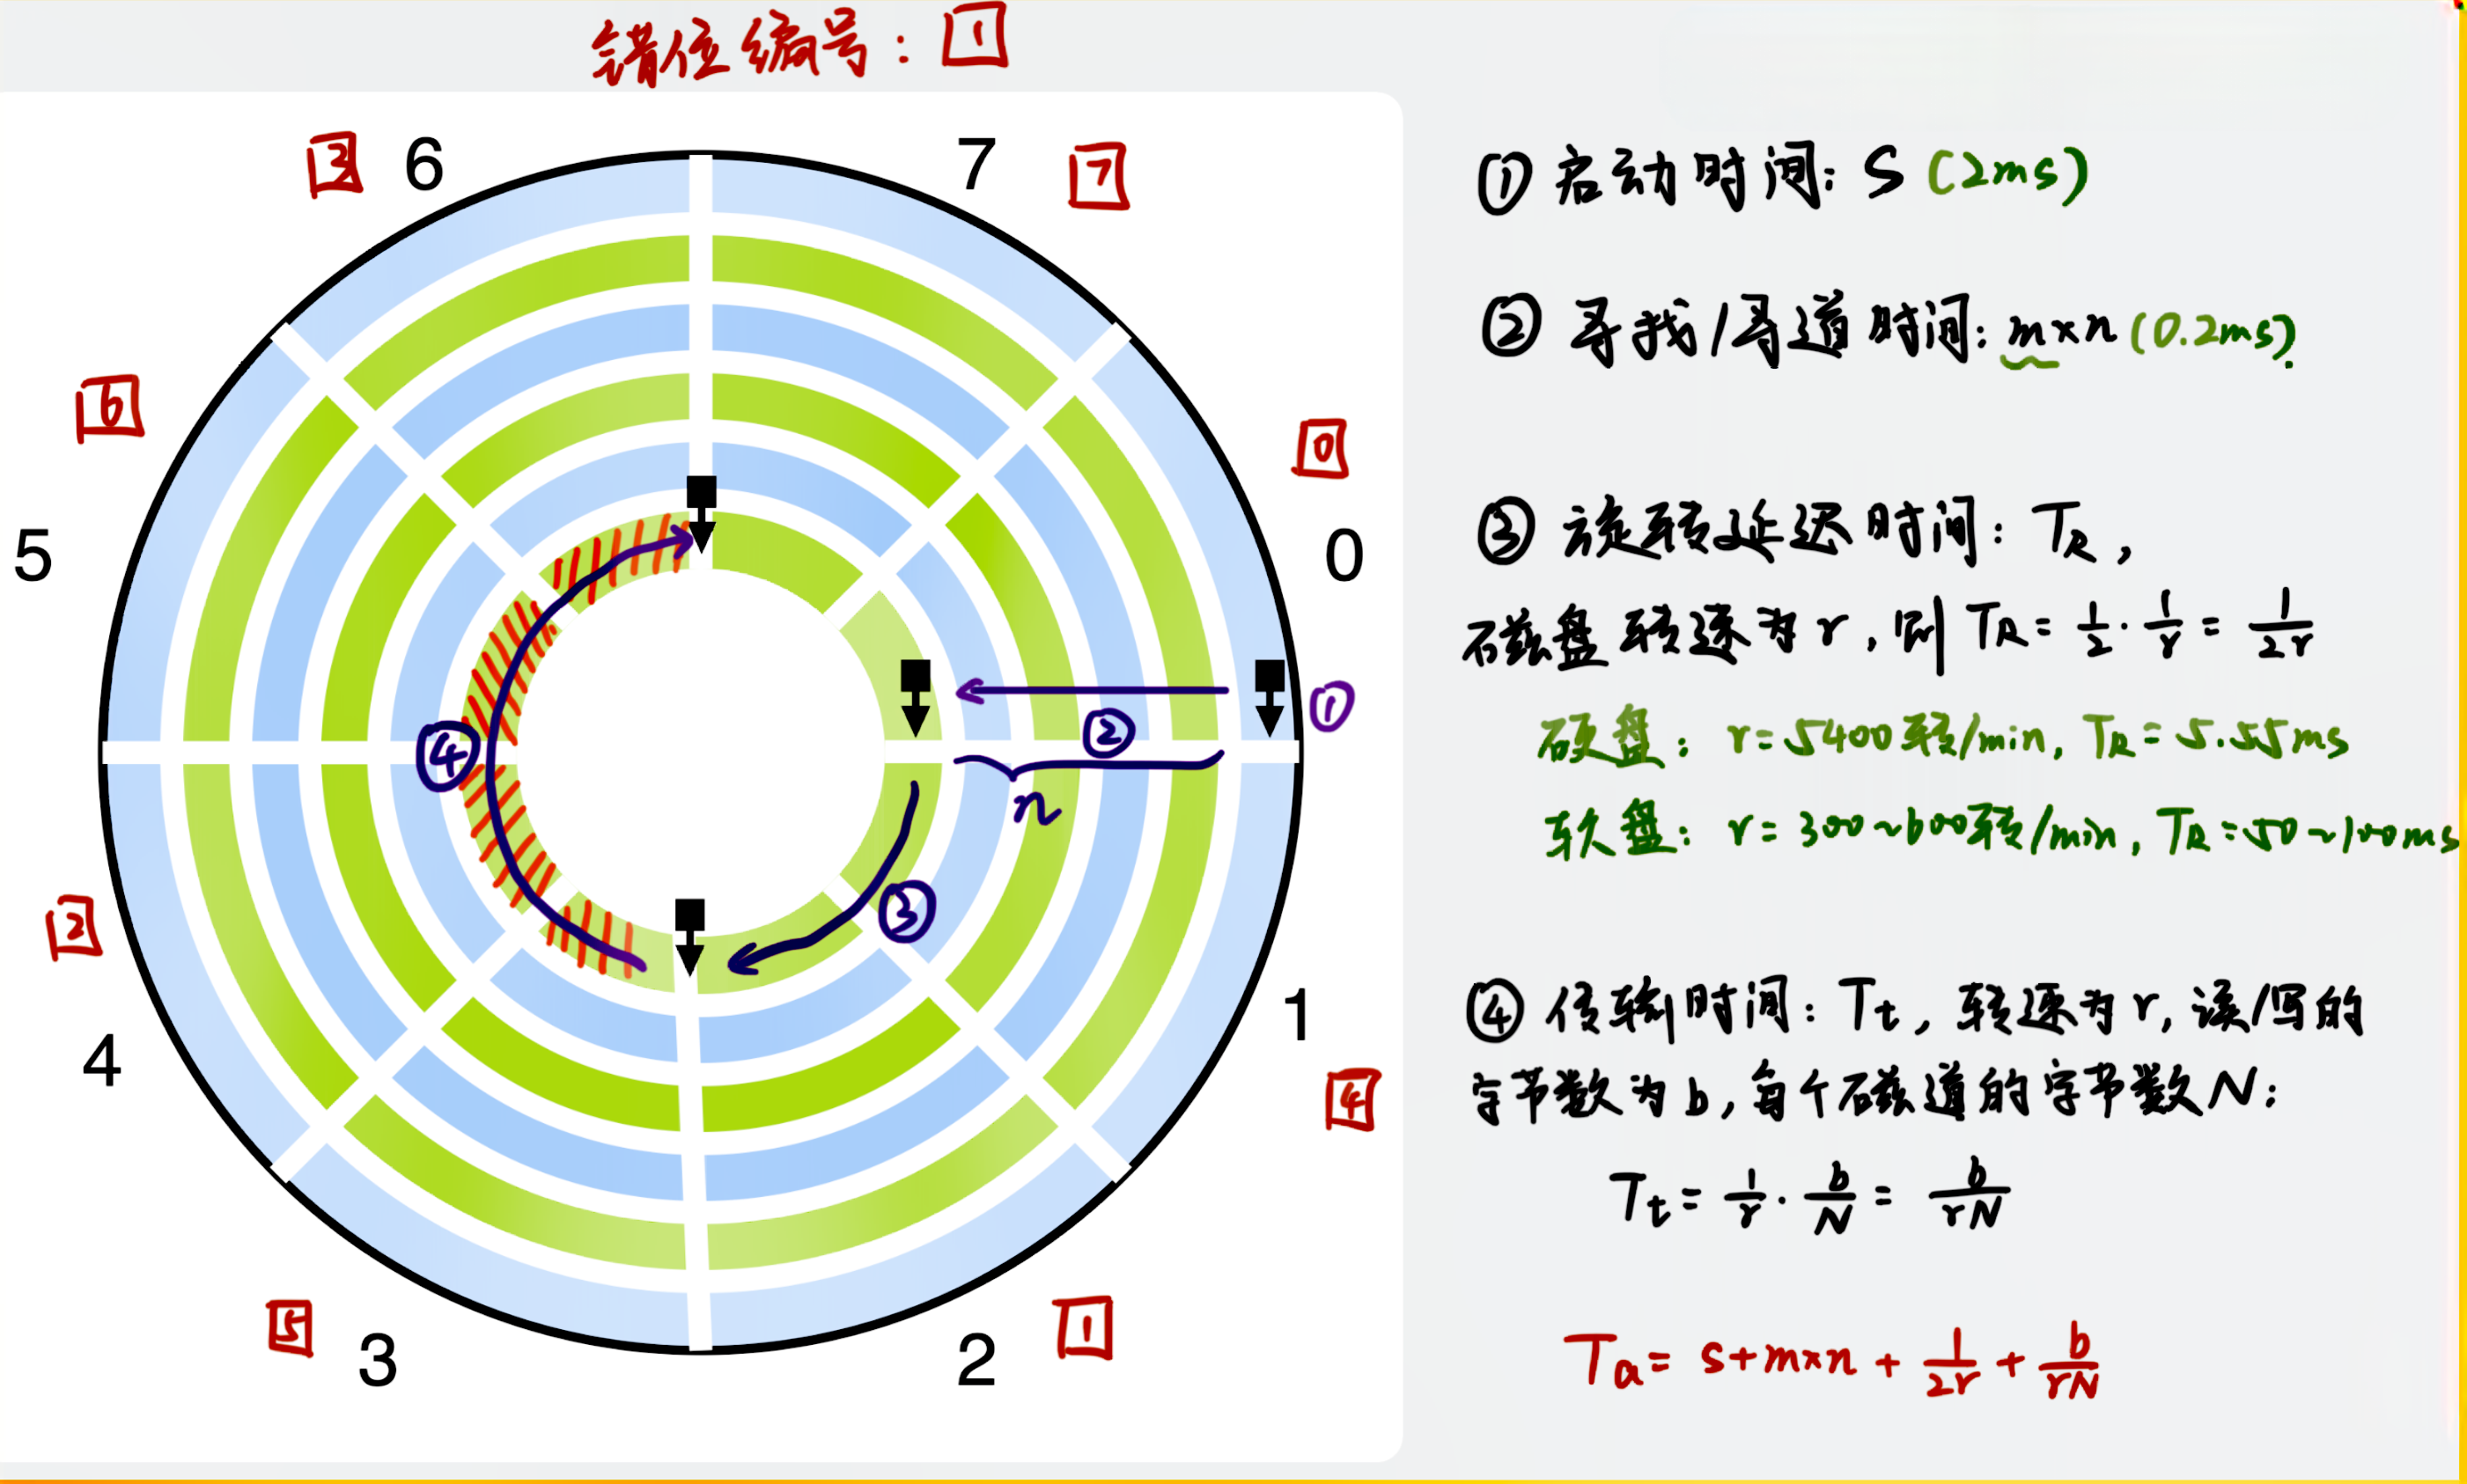 错位编号：1
3 6
7 7
6
0
5
0
① ② n ③ ④
2
1
4
4
5 3
2 1
① 启动时间：S (2ms)
② 寻找/寻道时间：m×n (0.2ms)
③ 旋转延迟时间：T_R，
磁盘转速为r，则 T_R = 1/2 · 1/r = 1/2r
硬盘：r=5400转/min, T_R=5.55ms
软盘：r=300~600转/min, T_R=50~100ms
④ 传输时间：Tt，转速为r，读/写的
字节数为b，每个磁道的字节数N：
Tt = 1/r · b/N = b/rN
Ta = s+m×n + 1/2r + b/rN